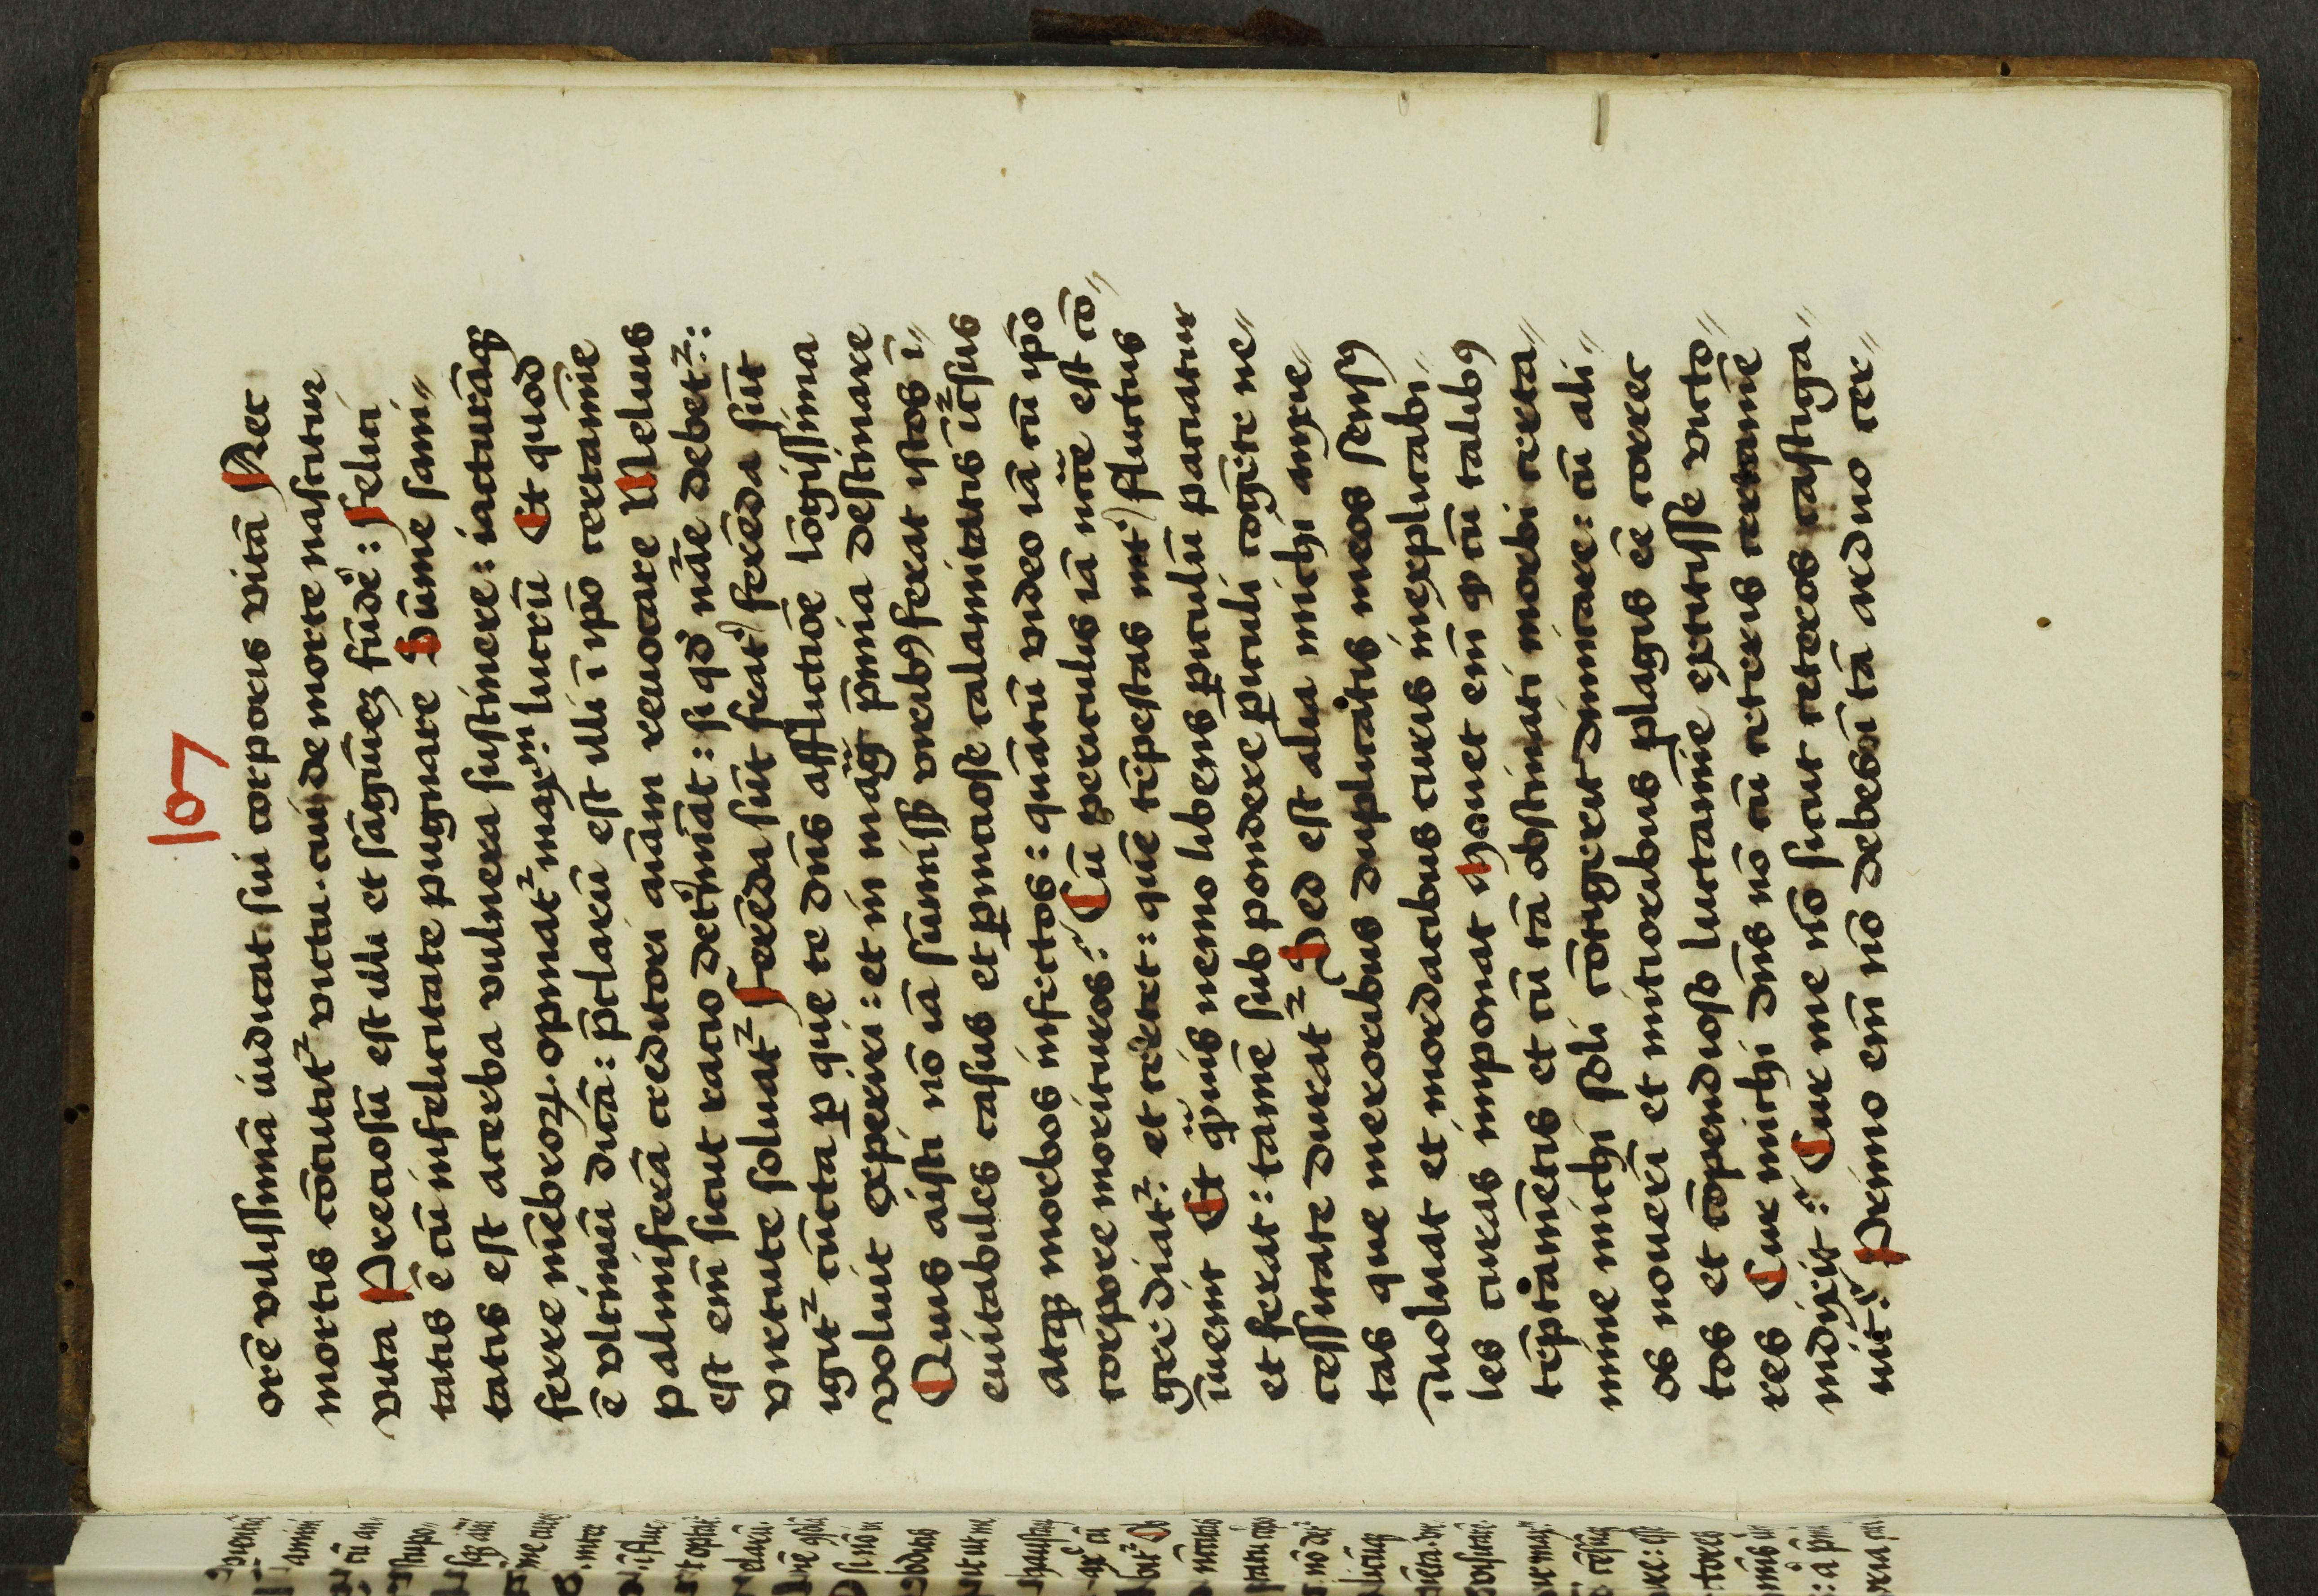 107
orē vilissimā iudicat sui corporis vitā Nec
mortis cōcutit² victu. cui de morte nascitur
vita Preciosū est illi et sāguinē fūdē: felici
tatis ē cū infelicitate pugnare Sūme sani
tatis est acerba vulnera sustinere: iacturāqȝ
ferre mēbroꝝ. opinat² maxim̄ lucrū Et quod
ē vltimū dicā: p̄clarū est illi ī ip̄o certamine
palmiferā creditori aīam reuocare Melius
est em̄ sicut racio det'minat: si qd' nāe debet²:
virtute soluat² Ferēda sūt sicut ferēda sūt
igit² cūcta ꝑ que te dn̄s afflictiōe lōgissima
voluit experiri: et in maḡ p̄mia destinare
Quis aūsti nō iā sūmissȝ viribꝰ ferat istos ī
euitabiles casus et ꝑniciose calamitatis īc²sus
atqȝ morbos infectos: quātū video iā cū ip̄o
corpore morituros: Cū periculis iā nōrē est cō
grediat². et c'tet: quē tēpestas mit' fluctus
īuenit Et q̄uis nemo libens ꝑiculū patiatur
et ferat: tamē sub pondere ꝑiculi cogēte ne
cessitate durat² Sed est alia michi anxie
tas que meroribus duplicatis meos sensꝰ
īuoluat et mordacibus curis inexplicabi
les curas imponat Mouet em̄ ꝙ cū talibꝰ
tēptamētis et cū tā obstinati morbi certa
mine michi soli cōtigerit dimicare: cū ali
os nouerī et mitioribus plagis eē correc
tos et cōpendioso luctamine extitisse victo
res Cur michi dn̄s nō cū ceteris certamē
indixit: Cur me nō sicut ceteros castiga
uit: Primo em̄ nō debeo ī tā arduo cer